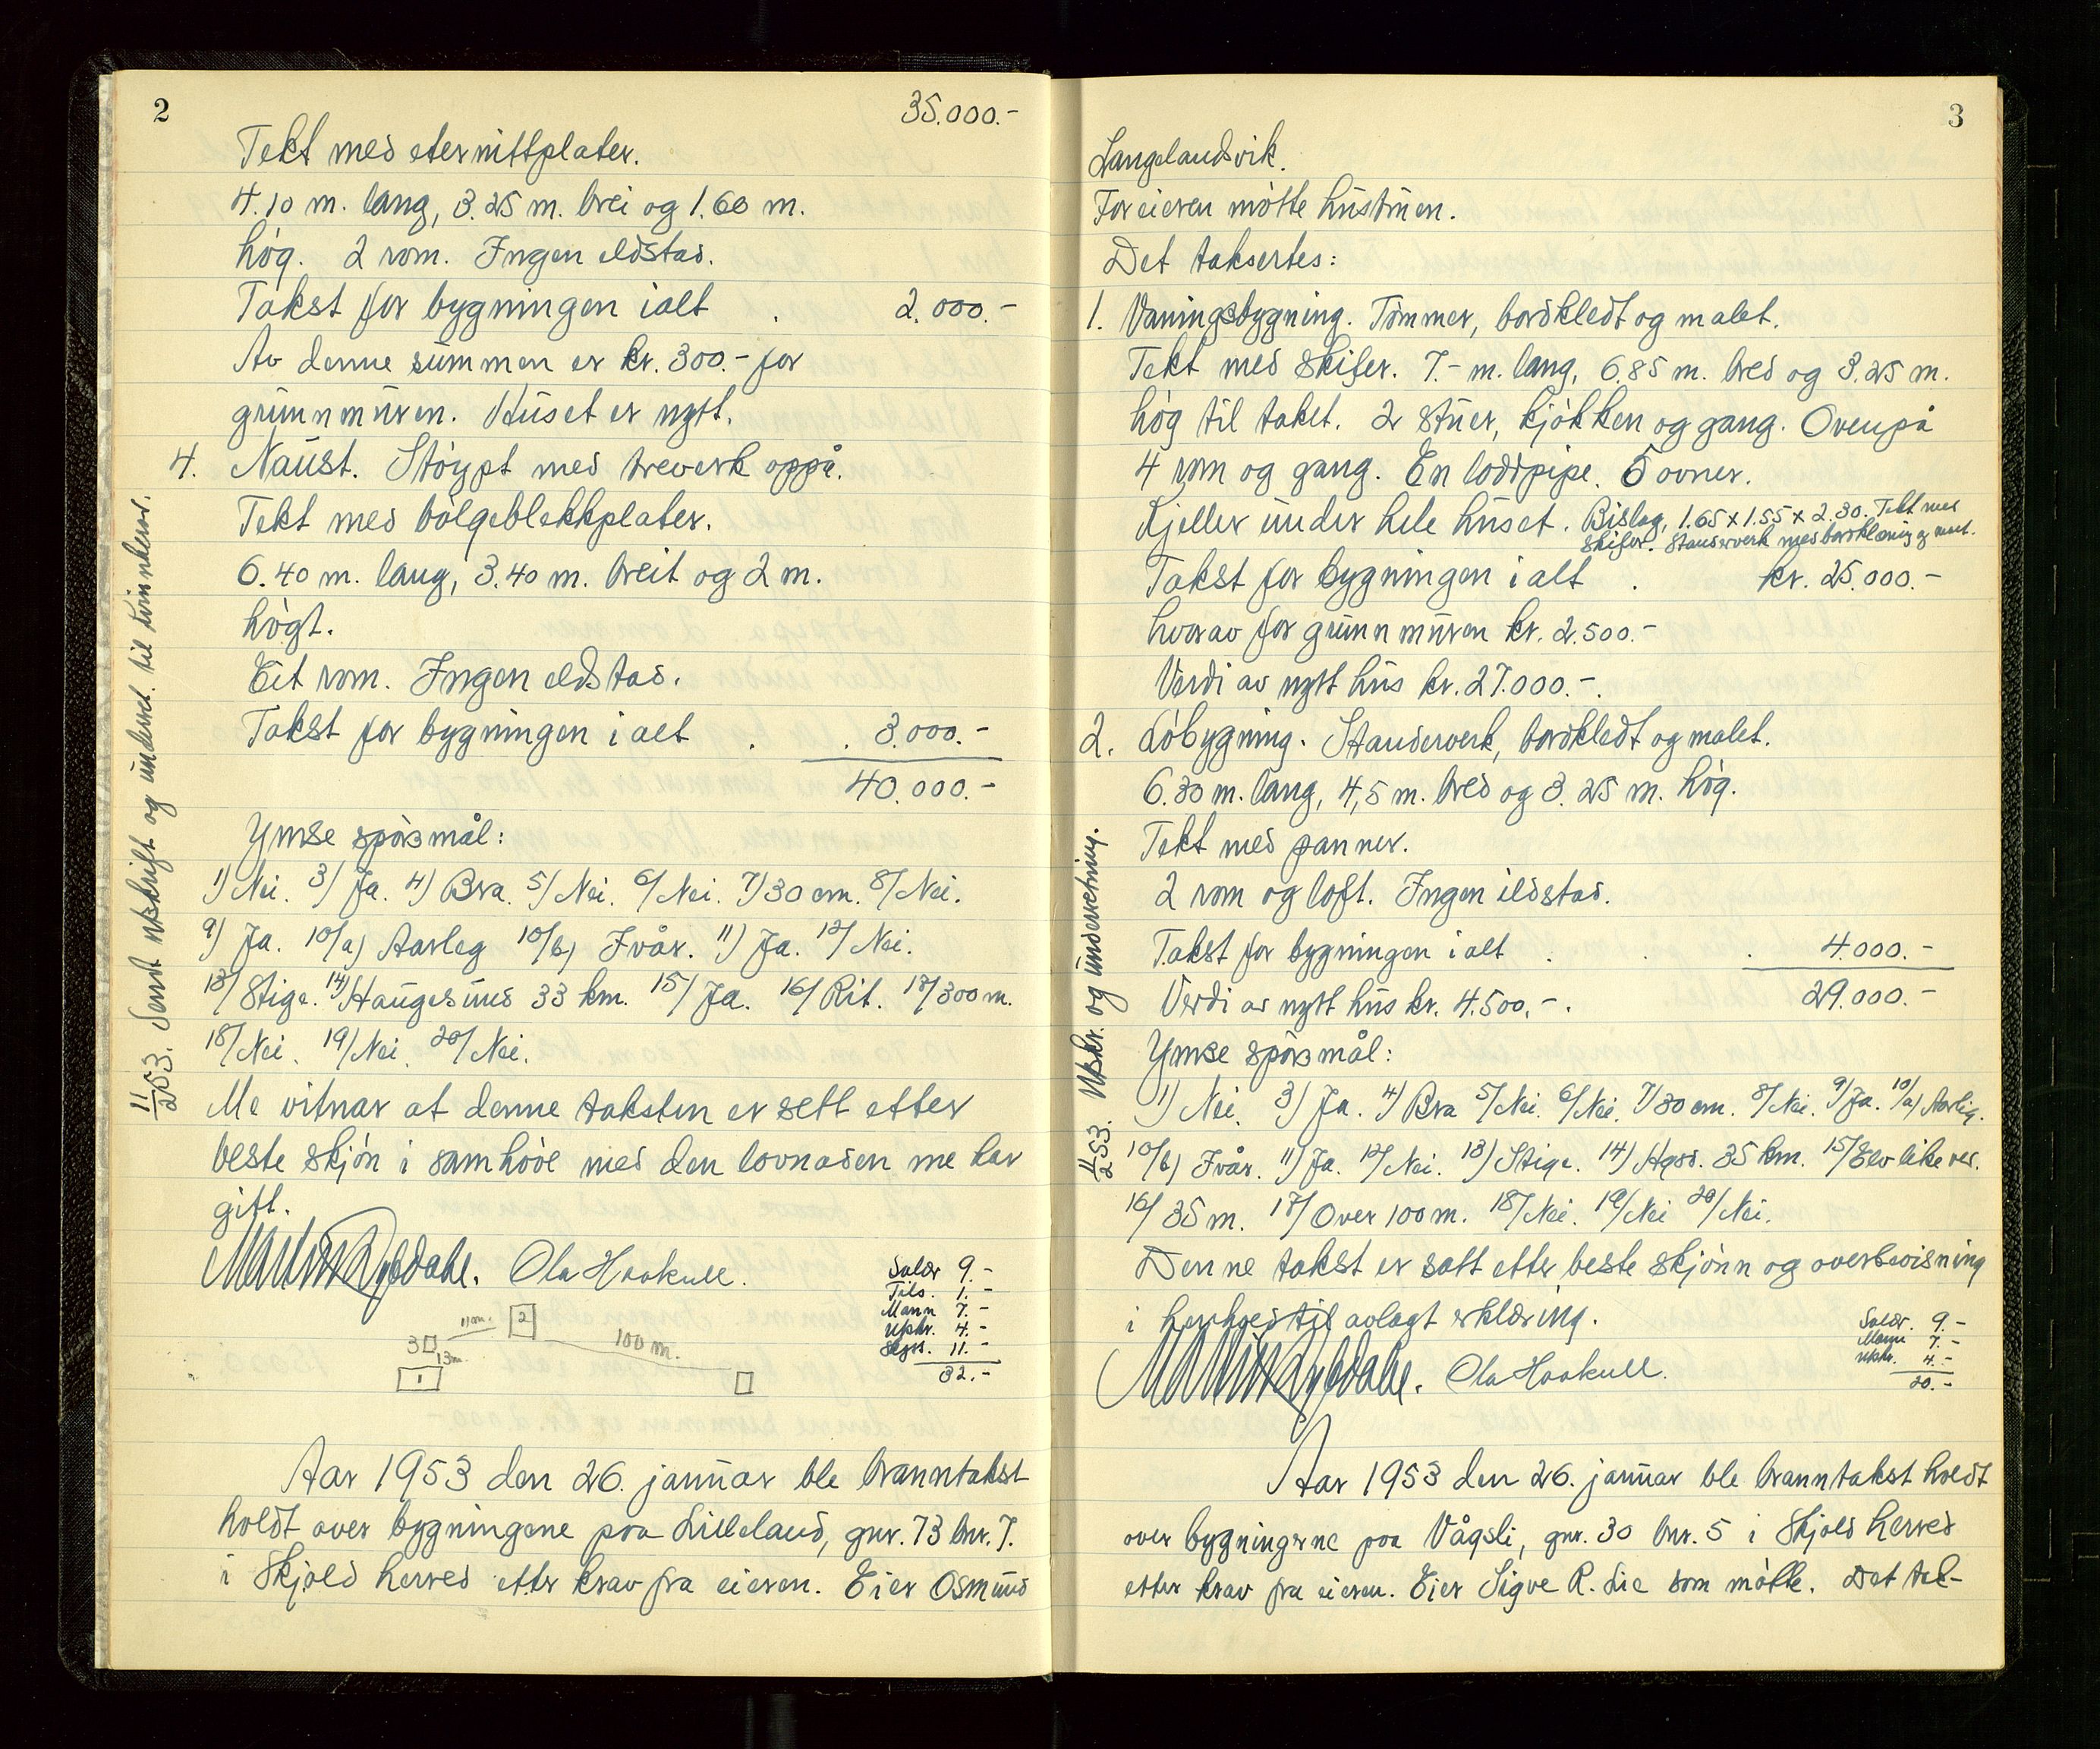 2
35.000.-
Tekt med eternittplater.
4.10 m. lang, 3.25 m. brei og 1.60 m.
høg. 2 rom. Ingen eldstad.
Takst for bygningen ialt . 2.000.-
Av denne summen er kr. 300.- for
grunnmuren. Huset er nytt.
4. Naust. Støypt med treverk oppå.
Tekt med bølgeblekkplater.
6.40 m. lang, 3.40 m. breit og 2 m.
høgt.
Eit rom. Ingen eldstad.
Takst for bygningen i alt . . 3.000.-
40.000.-
Ymse spørsmål:
1) Nei. 3) Ja. 4) Bra. 5/ Nei. 6/ Nei. 7/ 30 cm. 8/ Nei.
9) Ja. 10/a) Aarleg 10/b) Tvår. 11) Ja. 12/ Nei.
13/ Stige. 14/ Haugesund 33 km. 15/ Ja. 16/ Rit. 17/ 300 m.
18/ Nei. 19/ Nei. 20/ Nei.
Me vitnar at denne taksten er sett etter
beste skjøn i samhøve med den lovnaden me har
gitt.
Ola Haakull.
Salær 9.-
Tils. 1.-
Mann 7.-
Utskr. 4.-
Skyss. 11.-
32.-
11 m. 2
3 100 m.
13 m
1
Aar 1953 den 26. januar ble branntakst
holdt over bygningene paa Lilleland, gnr. 73 bnr. 7.
i Skjold herred etter krav fra eieren. Eier Osmund
11/2 53. Sendt utskrift og underret. til kvinnherad.
3
Langelandsvik.
For eieren møtte hustruen.
Det taksertes:
1. Vaningsbygning. Tømmer, bordkledt og malet.
Tekt med skifer. 7.- m. lang, 6.85 m. bred og 3.25 m.
høg til taket. 2 stuer, kjøkken og gang. Ovenpå
4 rom og gang. En loddpipe. 5 ovner.
Kjeller under hele huset. Bislag, 1.65 x 1.55 x 2.30. Tekt med
skifer. Standerverk med bordkledning og malt.
Takst for bygningen i alt . kr. 25.000.-
hvorav for grunnmuren kr. 2.500.-
Verdi av nytt hus kr. 27.000.-.
2. Løbygning. Standerverk, bordkledt og malet.
6.30 m. lang, 4,5 m. bred og 3.25 m. høg.
Tekt med panner.
2 rom og loft. Ingen ildstad.
Takst for bygningen i alt . . . 4.000.-
Verdi av nytt hus kr. 4.500,-. 29.000.-
Ymse spørsmål:
1) Nei. 3) Ja. 4) Bra 5/ Nei. 6/ Nei. 7/ 30 cm. 8/ Nei. 9/ Ja. 10/a) Aarlig.
10/b) Tvår. 11) Ja. 12/ Nei. 13) Stige. 14) Hgsd. 35 km. 15/ Elv like ved.
16/ 35 m. 17/ Over 100 m. 18/ Nei. 19/ Nei 20/ Nei.
Denne takst er satt etter beste skjønn og overbevisning
i henhold til avlagt erklæring.
Ola Haakull.
Salær. 9.-
Mann 7.-
Utskr. 4.-
20.-
Aar 1953 den 26. januar ble branntakst holdt
over bygningerne paa Vågsli, gnr. 30 bnr. 5 i Skjold herred
etter krav fra eieren. Eier Sigve R. Lie som møtte. Det tak-
11/2 53. Utskr. og underretning.